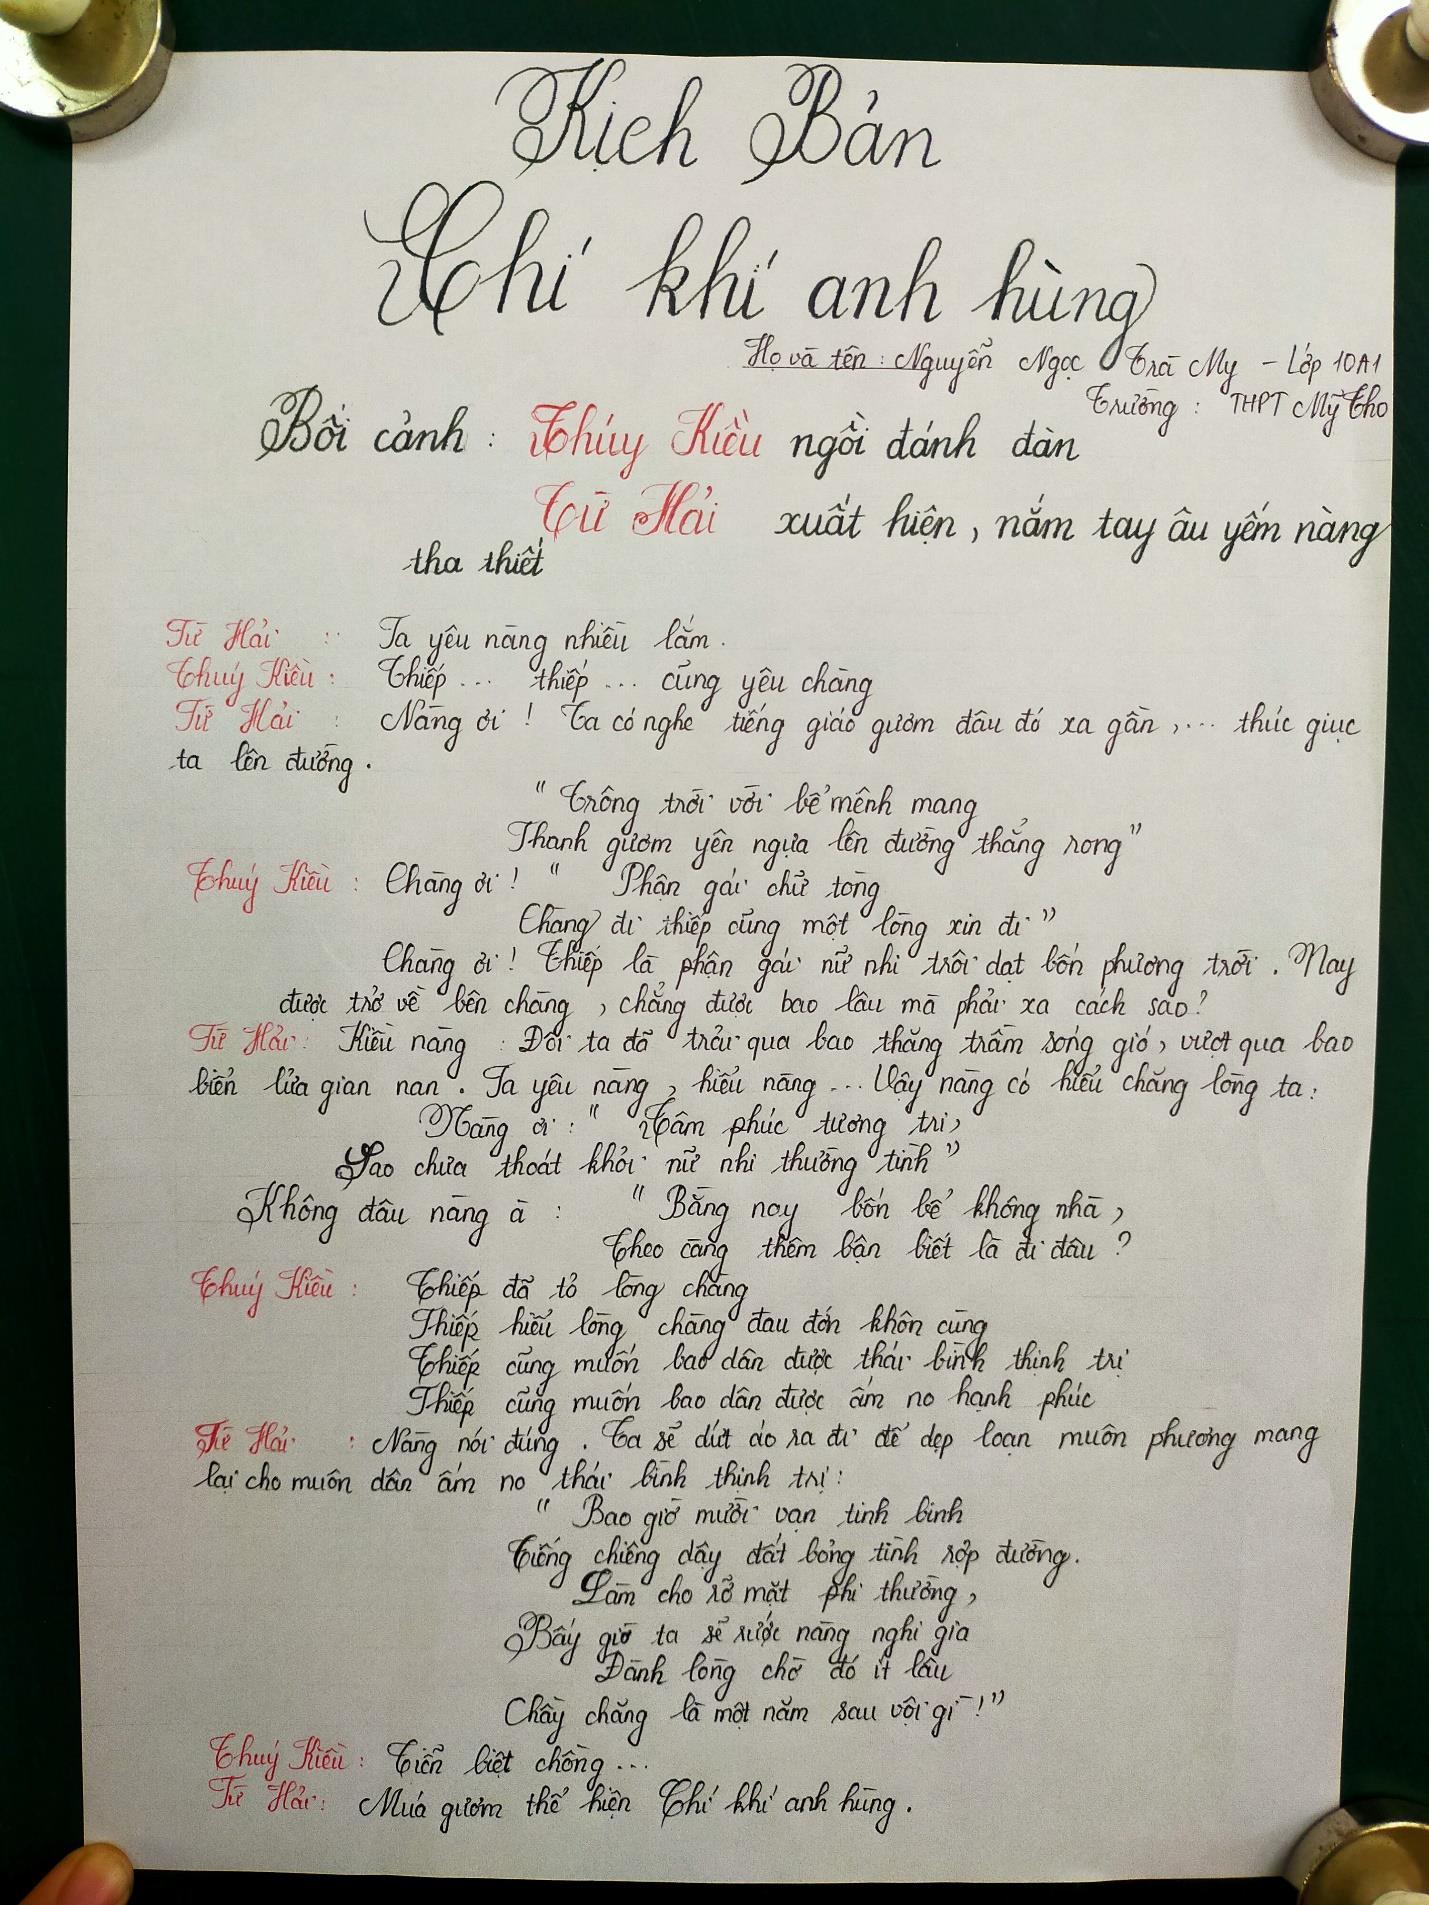 Kịch Bản
Chí khí anh hùng
Họ và tên : Nguyễn Ngọc Trà My - Lớp 10A1
Trường : THPT Mỹ Tho
Bối cảnh : Thúy Kiều ngồi đánh đàn
Từ Hải xuất hiện, nắm tay âu yếm nàng
tha thiết
Từ Hải : Ta yêu nàng nhiều lắm.
Thuý Kiều : Thiếp ... thiếp ... cũng yêu chàng
Từ Hải : Nàng ơi ! Ta có nghe tiếng giáo gươm đâu đó xa gần , ... thúc giục
ta lên đường.
" Trông trời với bể mênh mang
Thanh gươm yên ngựa lên đường thẳng rong"
Thuý Kiều : Chàng ơi ! " Phận gái chữ tòng
Chàng đi thiếp cũng một lòng xin đi "
Chàng ơi ! Thiếp là phận gái nữ nhi trôi dạt bốn phương trời. Nay
được trở về bên chàng , chẳng được bao lâu mà phải xa cách sao ?
Từ Hải : Kiều nàng : Đôi ta đã trải qua bao thăng trầm sóng gió, vượt qua bao
biển lửa gian nan. Ta yêu nàng , hiểu nàng ... Vậy nàng có hiểu chăng lòng ta :
Nàng ơi : " Tâm phúc tương tri,
Sao chưa thoát khỏi nữ nhi thường tình "
Không đâu nàng à : " Bằng nay bốn bể không nhà ,
Theo càng thêm bận biết là đi đâu ?
Thuý Kiều : Thiếp đã tỏ lòng chàng
Thiếp hiểu lòng chàng đau đớn khôn cùng
Thiếp cũng muốn bao dân được thái bình thịnh trị
Thiếp cũng muốn bao dân được ấm no hạnh phúc
Từ Hải : Nàng nói đúng . Ta sẽ dứt áo ra đi để dẹp loạn muôn phương mang
lại cho muôn dân ấm no thái bình thịnh trị :
" Bao giờ mười vạn tinh binh
Tiếng chiêng dậy đất bóng tinh rợp đường.
Làm cho rỡ mặt phi thường ,
Bấy giờ ta sẽ rước nàng nghi gia
Đành lòng chờ đó ít lâu
Chầy chăng là một năm sau vội gì !"
Thuý Kiều : Tiễn biệt chồng ...
Từ Hải : Múa gươm thể hiện Chí khí anh hùng .